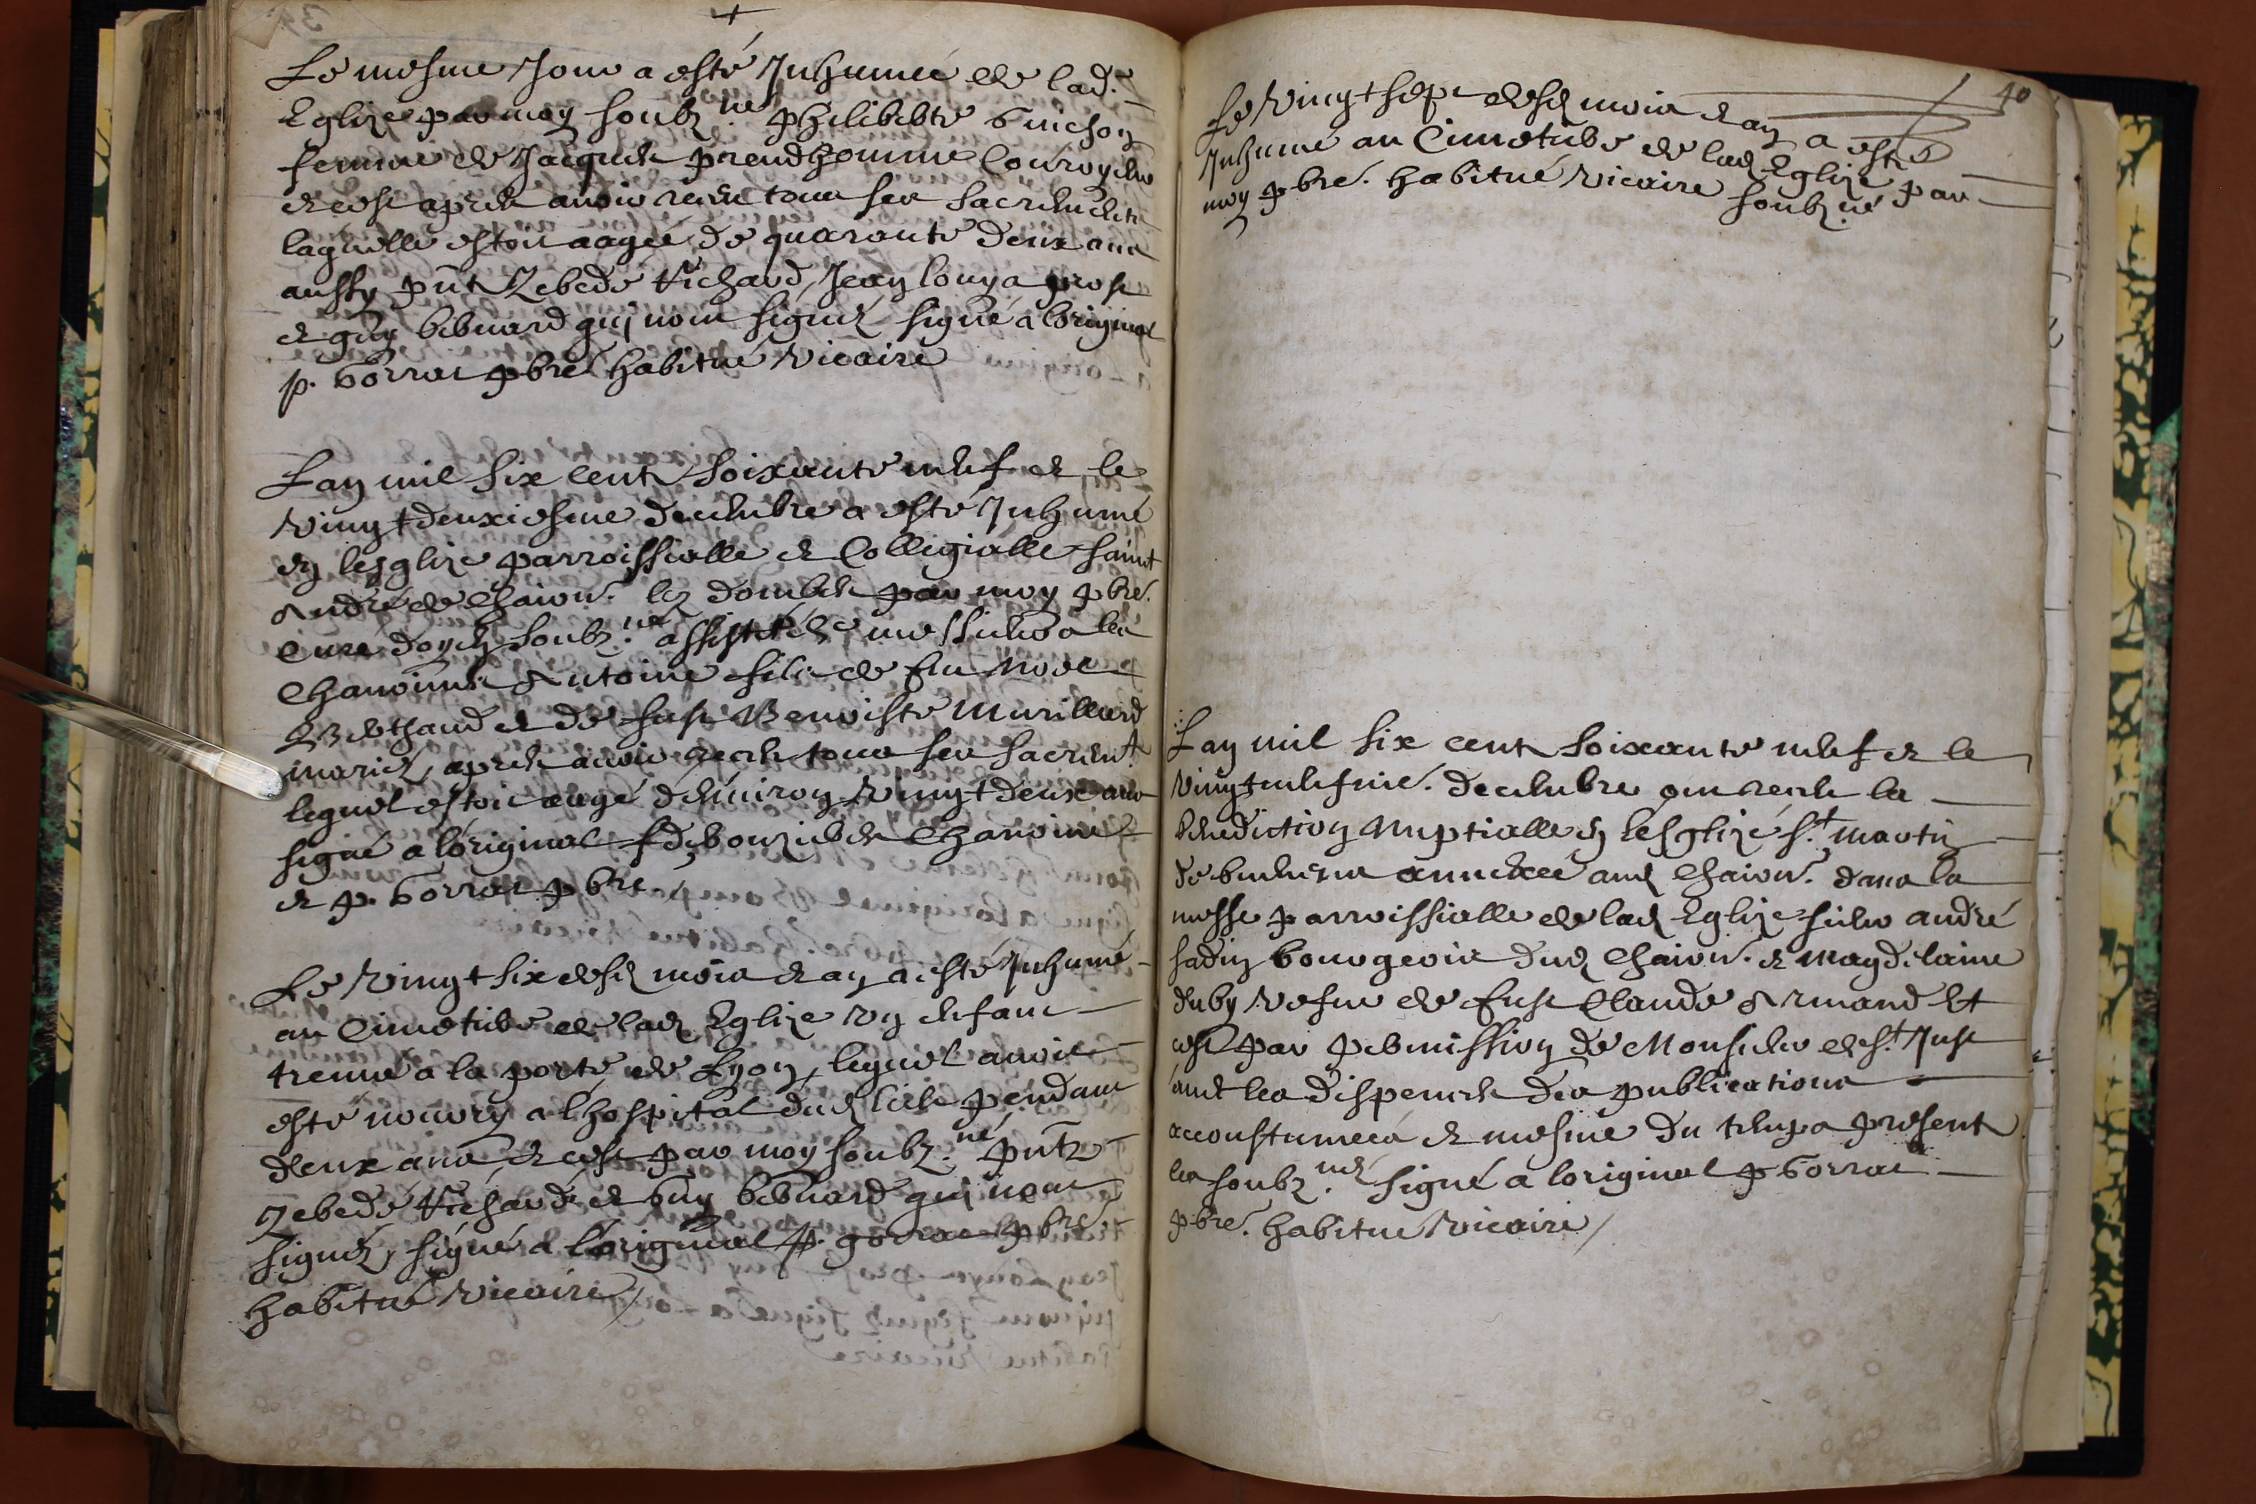 Le mesme Jour a esté Inhumée de lad.
Eglize par moy soubz.né philiberte Guichon
femme de Jacques preudhomme Couroyeur
et ce apres avoir receu tous ses sacrements
laquelle estoit aagée de quarante deux ans
aussy pnt Zebedé Richard, Jean Louys
et guy bernard qui nont signer signé a l'original
p. Gorrat pbre habitué vicaire
Lan mil six cent soixante neuf et le
vingt deuxiesme decembre a esté Inhumé
en lesglize parroissialle et Collegialle saint
André de Chaion. les dombes par moy pbre.
Curé doyen soubz.né assisté de messieurs les
Chanoines Antoine fils de feu Noel
Berthaud et de fust Benoiste Murilliard
mariez, apres avoir receu tous ses sacremt
lequel estoit aagé denviron vingt deux ans
signé a l'original Chanoine
et p. Gorrat pbre
Le vingt six desd mois et an a esté Inhumé
au Cimetiere de lad Eglize un enfant
treuvé a la porte de Lyon, lequel avoit
esté nourry a lhospital dud lieu pendant
deux ans et ce par moy soubz.né pnts
Zebedé Richard et Guy bernard qui nont
signer, signé a loriginal p. gorrat pbre
habitué vicaire
40
Le vingt sept desd mois et an a esté
Inhumé au Cimetiere de lad Eglize par
moy pbre. habitué vicaire soubz.né
Lan mil six cent soixante neuf et le
vingt neufme. decembre ont receu la
benediction Nuptialle en Lesglize St. Martin
annexée aud Chaion. dans la
messe parroissialle de lad Eglize sieur andré
sadin bourgeois dud Chaion. et Magdelaine
duby vefve de fust Claude Armand Et
ce par permission de Monsieur de St Just
les dispences des publications
accoustumees et mesme du temps presents
les soubz.nés signé a loriginal p Gorrat
pbre. habitué vicaire